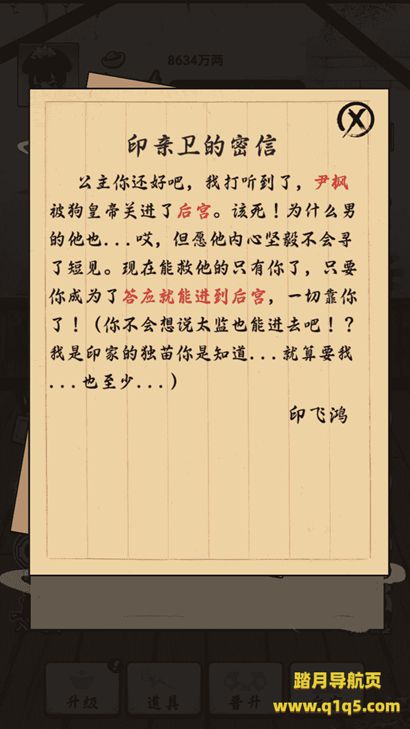 8634万两
印亲卫的密信
公主你还好吧，我打听到了，尹枫
被狗皇帝关进了后宫。该死！为什么男
的他也...哎，但愿他内心坚毅不会寻
了短见。现在能救他的只有你了，只要
你成为了答应就能进到后宫，一切靠你
了！（你不会想说太监也能进去吧！？
我是印家的独苗你是知道...就算要我
...也至少...）
印飞鸿
升级 道具 晋升
踏月导航页
www.q1q5.com